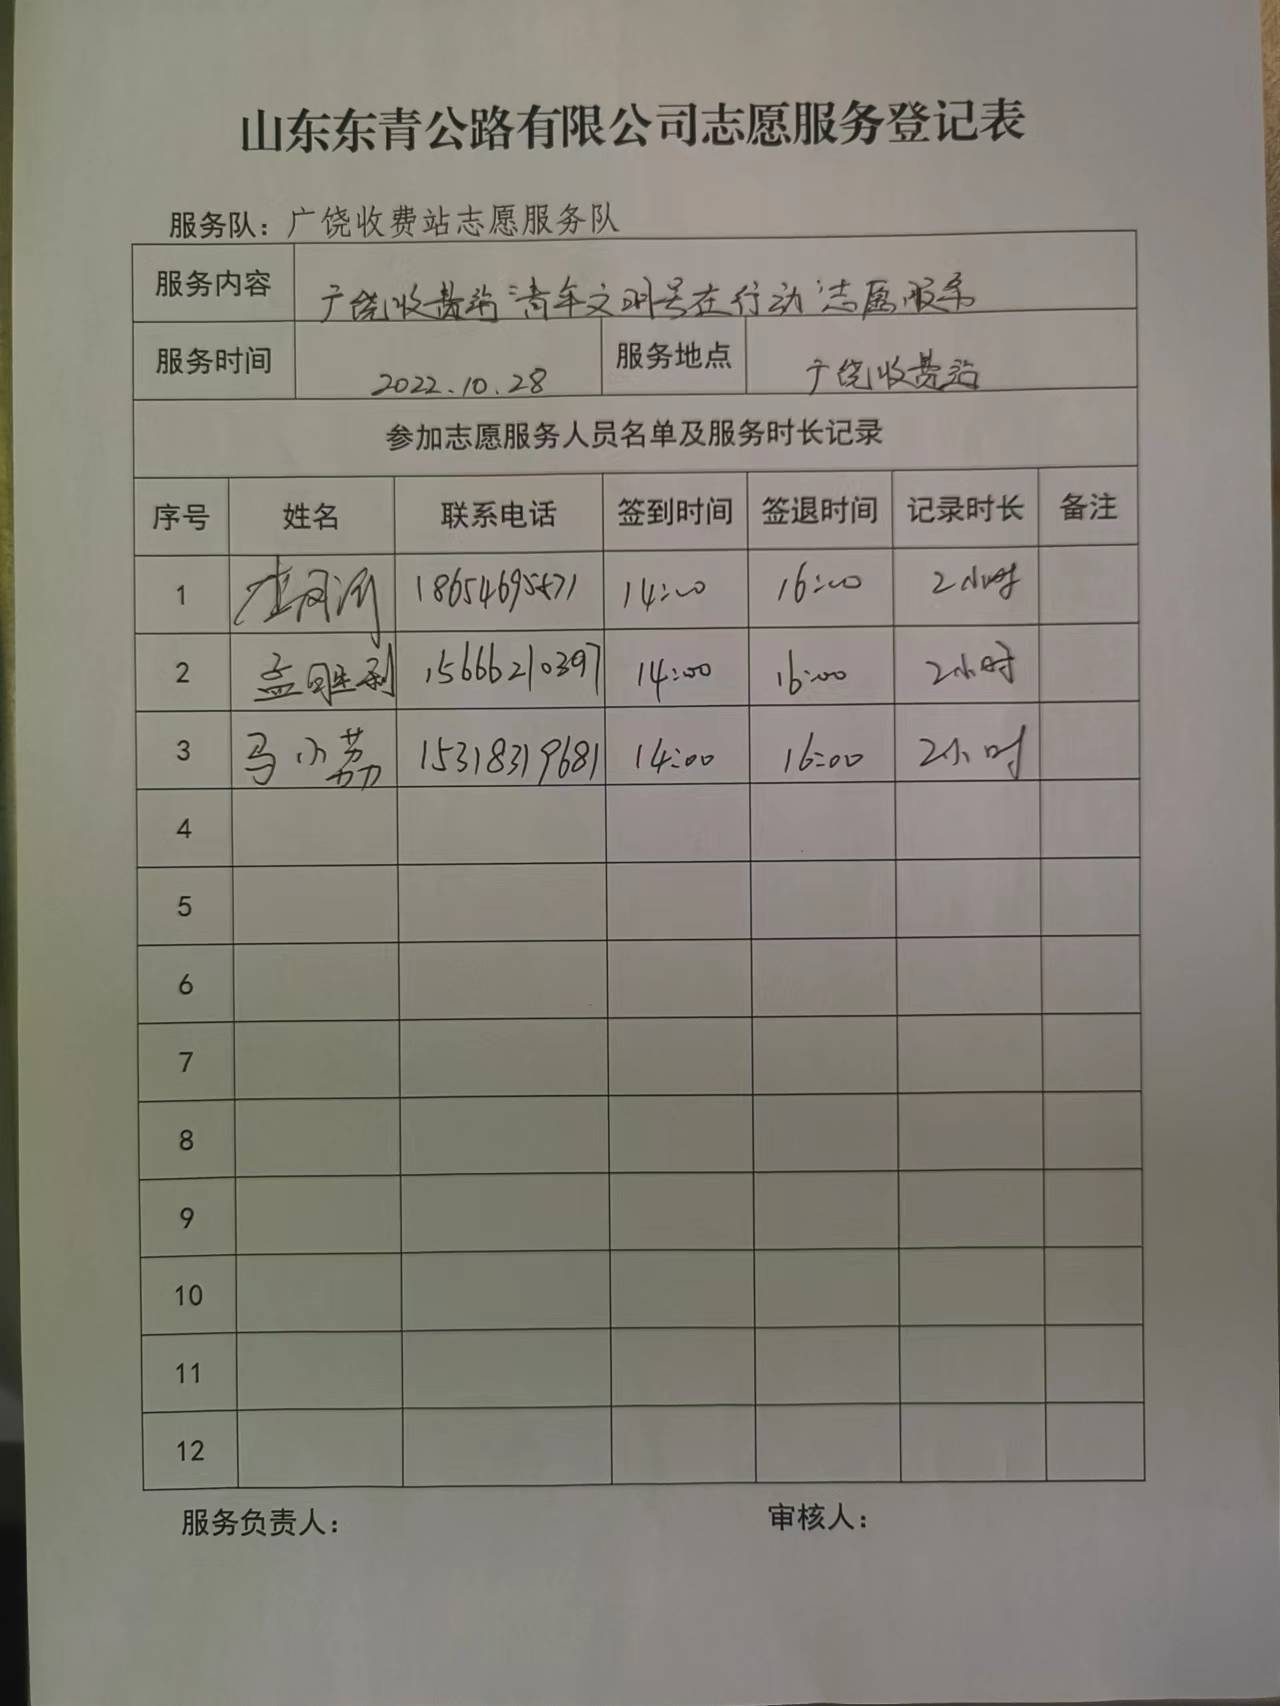 山东东青公路有限公司志愿服务登记表
服务队：广饶收费站志愿服务队
服务内容 广饶收费站“青年文明号在行动”志愿服务
服务时间 2022.10.28 服务地点 广饶收费站
参加志愿服务人员名单及服务时长记录
序号 姓名 联系电话 签到时间 签退时间 记录时长 备注
1 14:00 16:00 2小时
2 孟胜利 15666210397 14:00 16:00 2小时
3 马小荔 15318319681 14:00 16:00 2小时
4
5
6
7
8
9
10
11
12
服务负责人： 审核人：